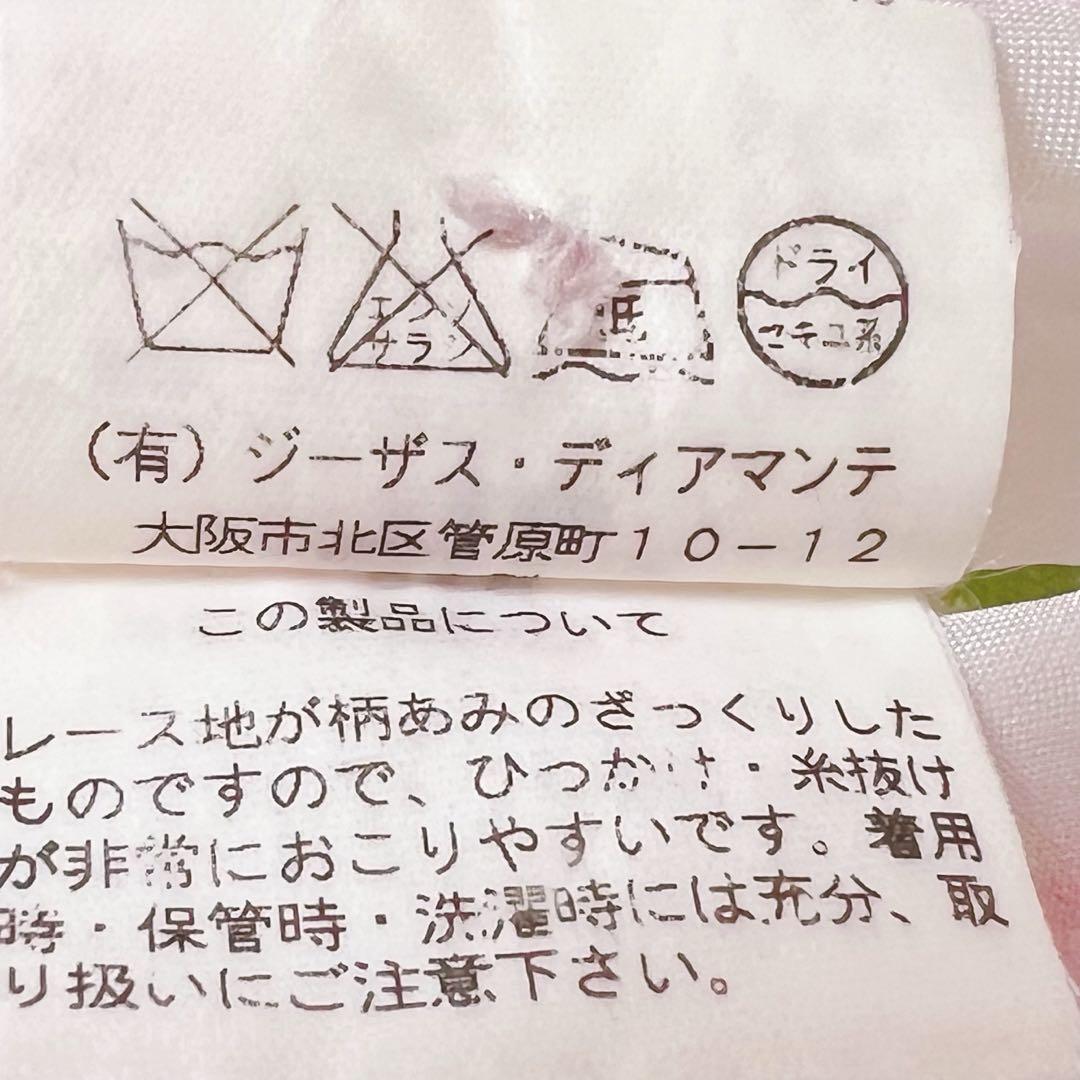 エン
サラシ
ドライ
セキユ系
(有)ジーザス・ディアマンテ
大阪市北区菅原町10-12
この製品について
レース地が柄あみのざっくりした
ものですので、ひっかけ・糸抜け
が非常におこりやすいです。着用
時・保管時・洗濯時には充分、取
り扱いにご注意下さい。